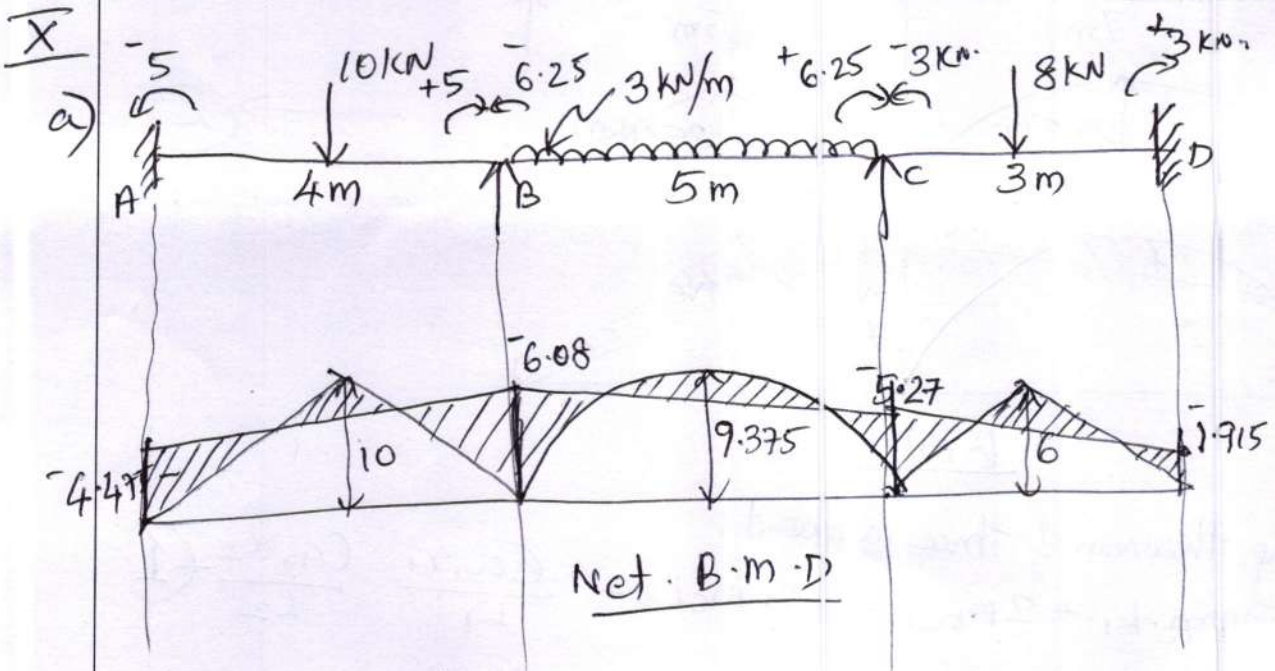 X
-5 10 KN +5 -6.25 3 KN/m +6.25 -3 KN. 8 KN +3 KN.
a)
A 4m B 5m C 3m D
-6.08 -5.27
-4.47 10 9.375 6 -1.915
Net. B.m.D